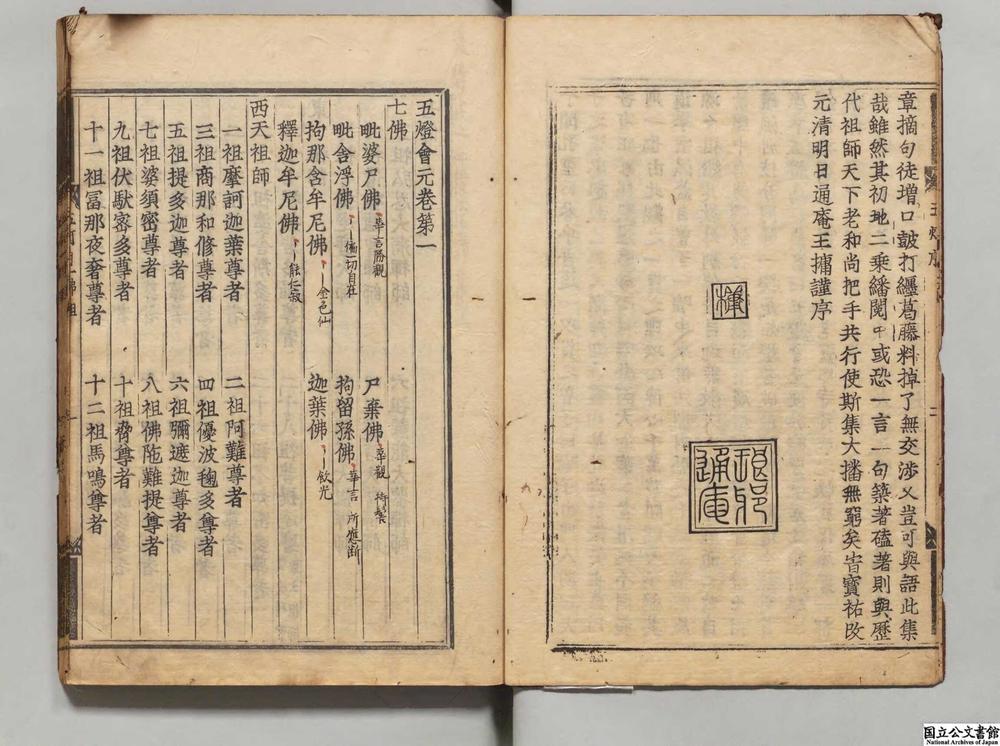 章摘句徒增口皷打纏葛藤料掉了無交渉又豈可與語此集
哉雖然其初地二乘繙閲中或恐一言一句築著磕著則與歴
代祖師天下老和尚把手共行使斯集大播無窮矣旹寶祐改
元清明日通庵王槦謹序
五燈會元卷第一
七佛
毗婆尸佛 華言勝觀 尸棄佛
毗舍浮佛 徧一切自在 拘留孫佛 華言 所應斷
拘那含牟尼佛 金色仙 迦葉佛 飲光
釋迦牟尼佛 能仁寂
西天祖師
一祖摩訶迦葉尊者 二祖阿難尊者
三祖商那和修尊者 四祖優波毱多尊者
五祖提多迦尊者 六祖彌遮迦尊者
七祖婆須密尊者 八祖佛陁難提尊者
九祖伏馱密多尊者 十祖脅尊者
十一祖冨那夜奢尊者 十二祖馬鳴尊者
国立公文書館
National Archives of Japan